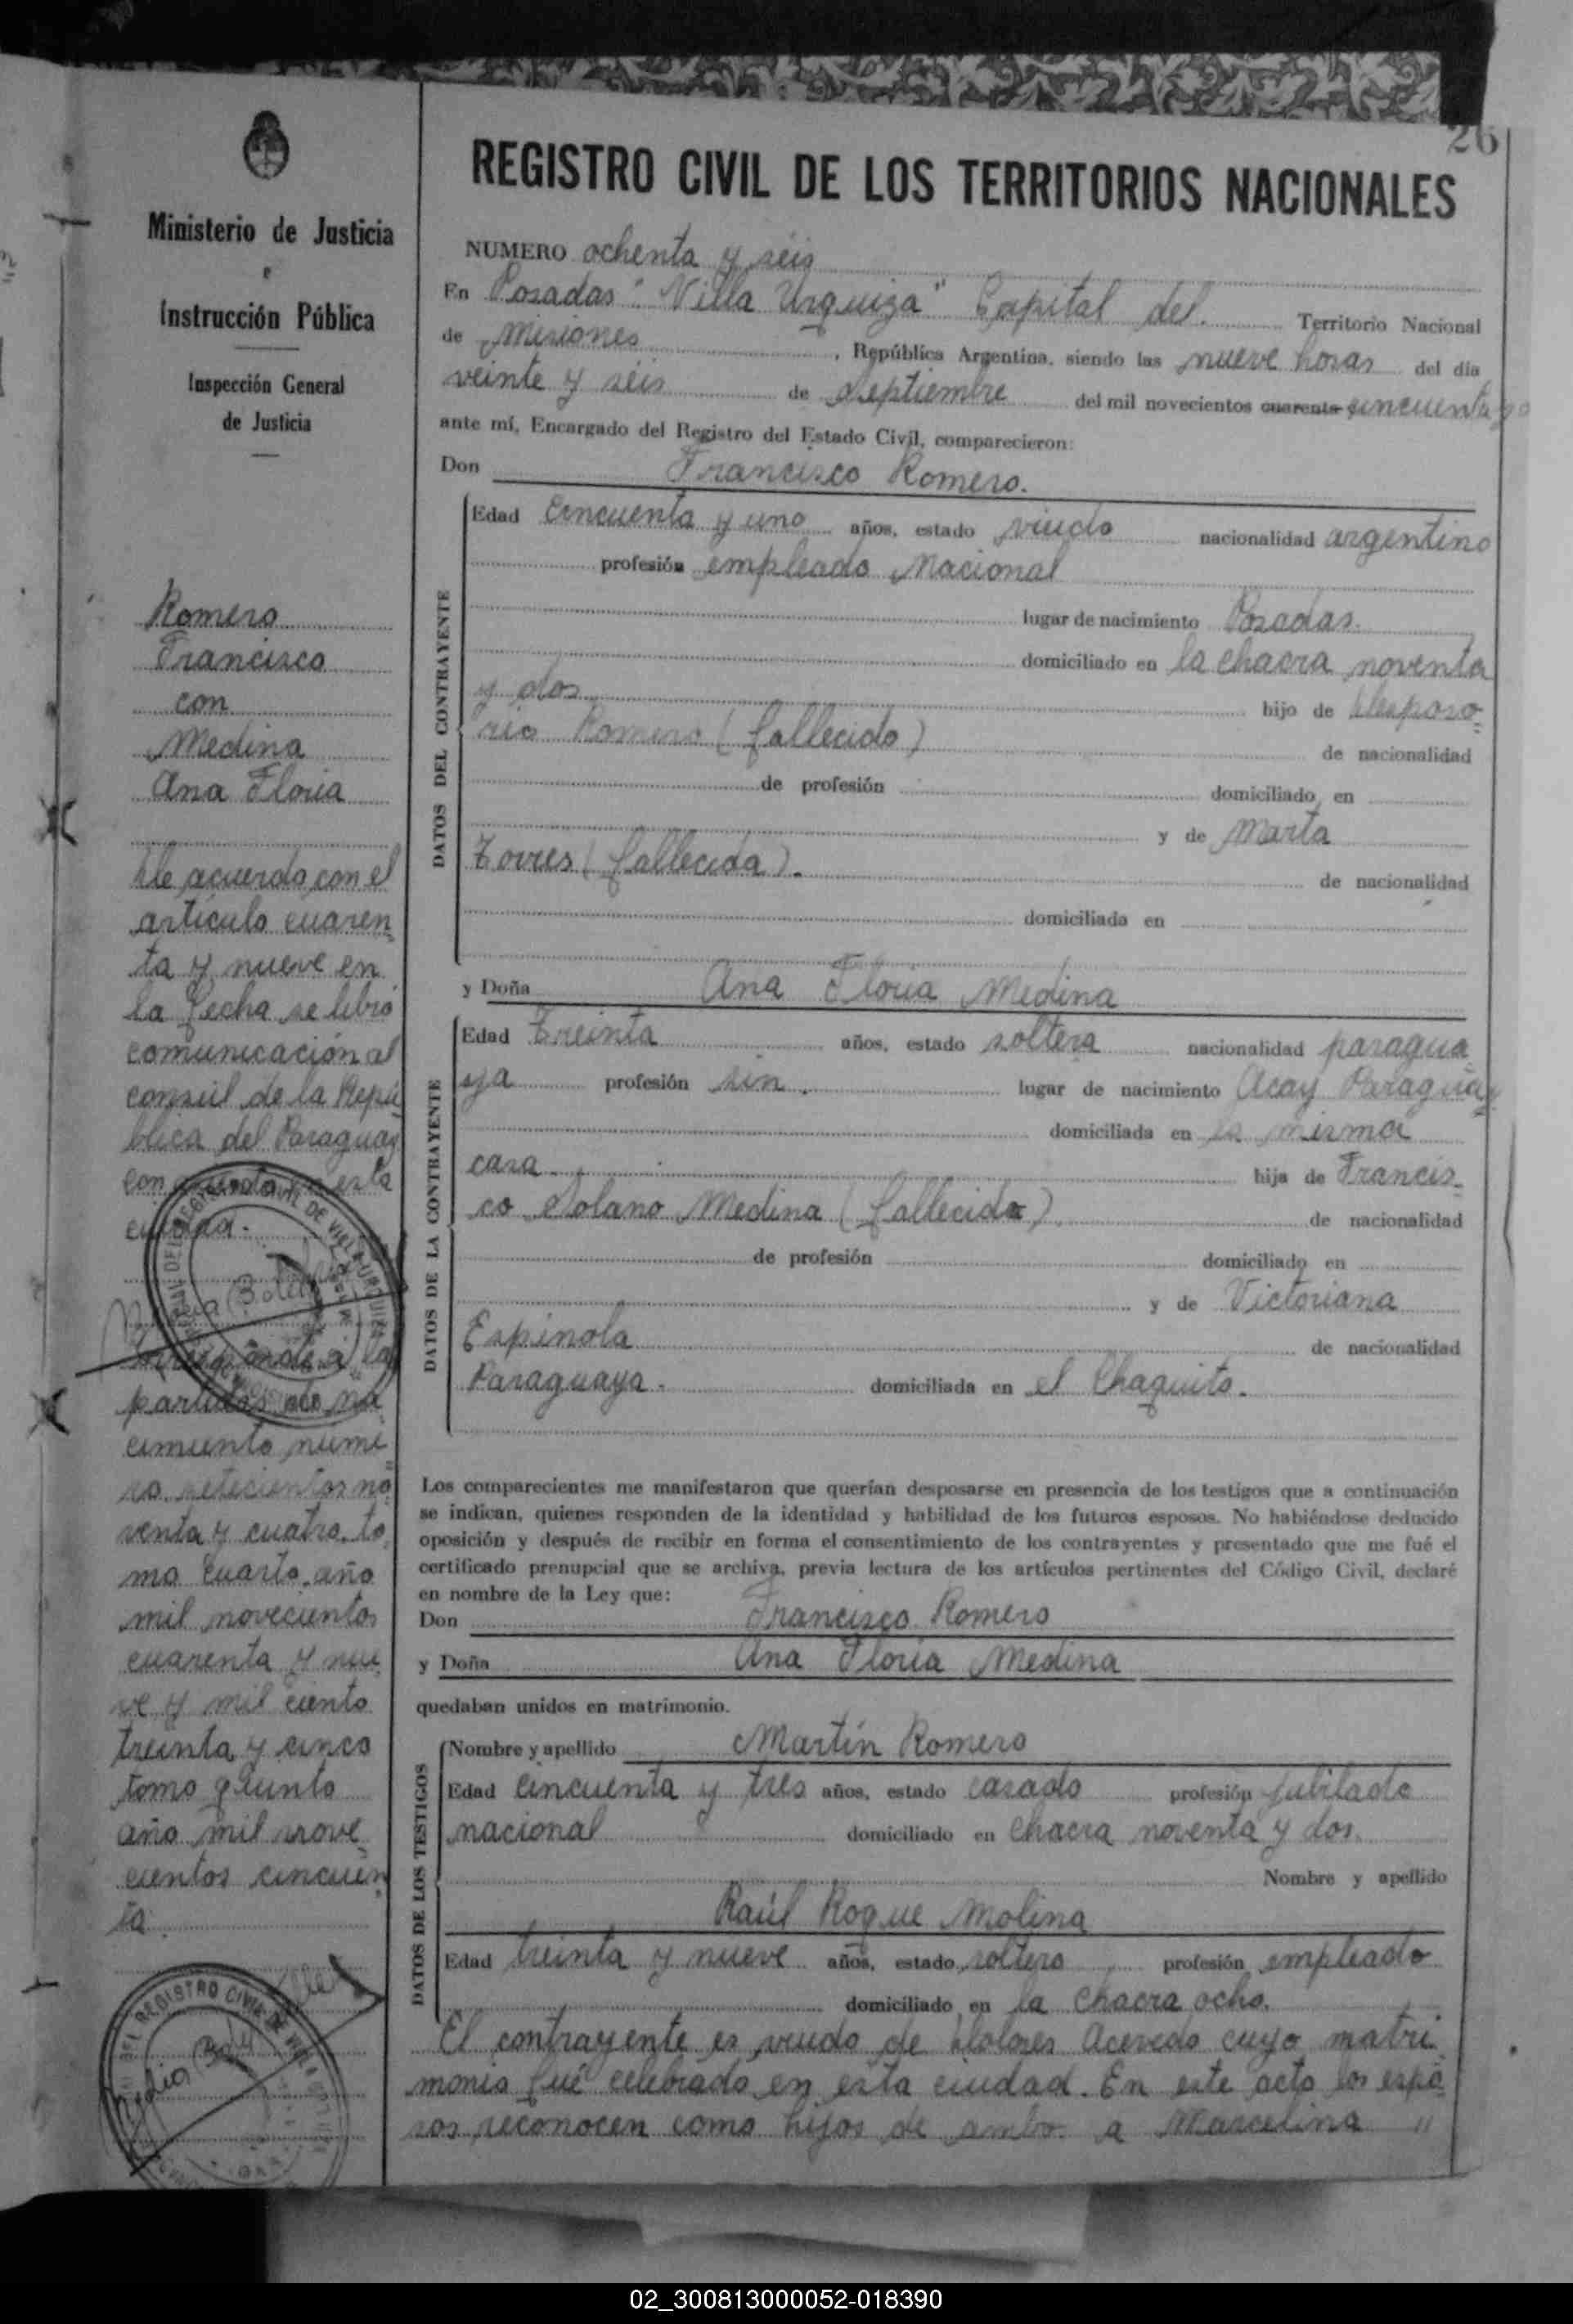 26
Ministerio de Justicia
e
Instrucción Pública
Inspección General
de Justicia
Romero
Francisco
con
Medina
Ana Floria
De acuerdo con el
artículo cuaren
ta y nueve en
la fecha se libró
comunicación al
consul de la Repú
blica del Paraguay
con esta
ciudad.
a la
partidas de na
cimiento núme
ro setecientos no
venta y cuatro to
mo cuarto, año
mil novecientos
cuarenta y nue
ve y mil ciento
treinta y cinco
tomo quinto
año mil nove
cientos cincuen
ta
REGISTRO CIVIL DE LOS TERRITORIOS NACIONALES
NUMERO ochenta y seis
En Posadas "Villa Urquiza" Capital del Territorio Nacional
de Misiones, República Argentina, siendo las nueve horas del día
veinte y seis de Septiembre del mil novecientos cuarenta cincuenta
ante mí, Encargado del Registro del Estado Civil, comparecieron:
Don Francisco Romero.
DATOS DEL CONTRAYENTE
Edad cincuenta y uno años, estado viudo nacionalidad argentino
profesión empleado Nacional
lugar de nacimiento Posadas.
domiciliado en la chacra noventa
y dos hijo de Desposo
rio Romero (fallecido) de nacionalidad
de profesión domiciliado en
y de Marta
Torres (fallecida). de nacionalidad
domiciliada en
y Doña Ana Floria Medina
DATOS DE LA CONTRAYENTE
Edad Treinta años, estado soltera nacionalidad paragua
ya profesión sin. lugar de nacimiento Acay Paraguay
domiciliada en la misma
casa hija de Francis
co Solano Medina (fallecido) de nacionalidad
de profesión domiciliado en
y de Victoriana
Espinola de nacionalidad
Paraguaya. domiciliada en el Chaquito.
Los comparecientes me manifestaron que querían desposarse en presencia de los testigos que a continuación
se indican, quienes responden de la identidad y habilidad de los futuros esposos. No habiéndose deducido
oposición y después de recibir en forma el consentimiento de los contrayentes y presentado que me fué el
certificado prenupcial que se archiva, previa lectura de los artículos pertinentes del Código Civil, declaré
en nombre de la Ley que:
Don Francisco Romero
y Doña Ana Floria Medina
quedaban unidos en matrimonio.
DATOS DE LOS TESTIGOS
Nombre y apellido Martín Romero
Edad cincuenta y tres años, estado casado profesión jubilado
nacional domiciliado en chacra noventa y dos.
Nombre y apellido
Raúl Roque Molina
Edad treinta y nueve años, estado soltero profesión empleado
domiciliado en la chacra ocho.
El contrayente es viudo de Dolores Acevedo cuyo matri
monio fué celebrado en esta ciudad. En este acto los espo
sos reconocen como hijos de ambo a Marcelina "
02_300813000052-018390